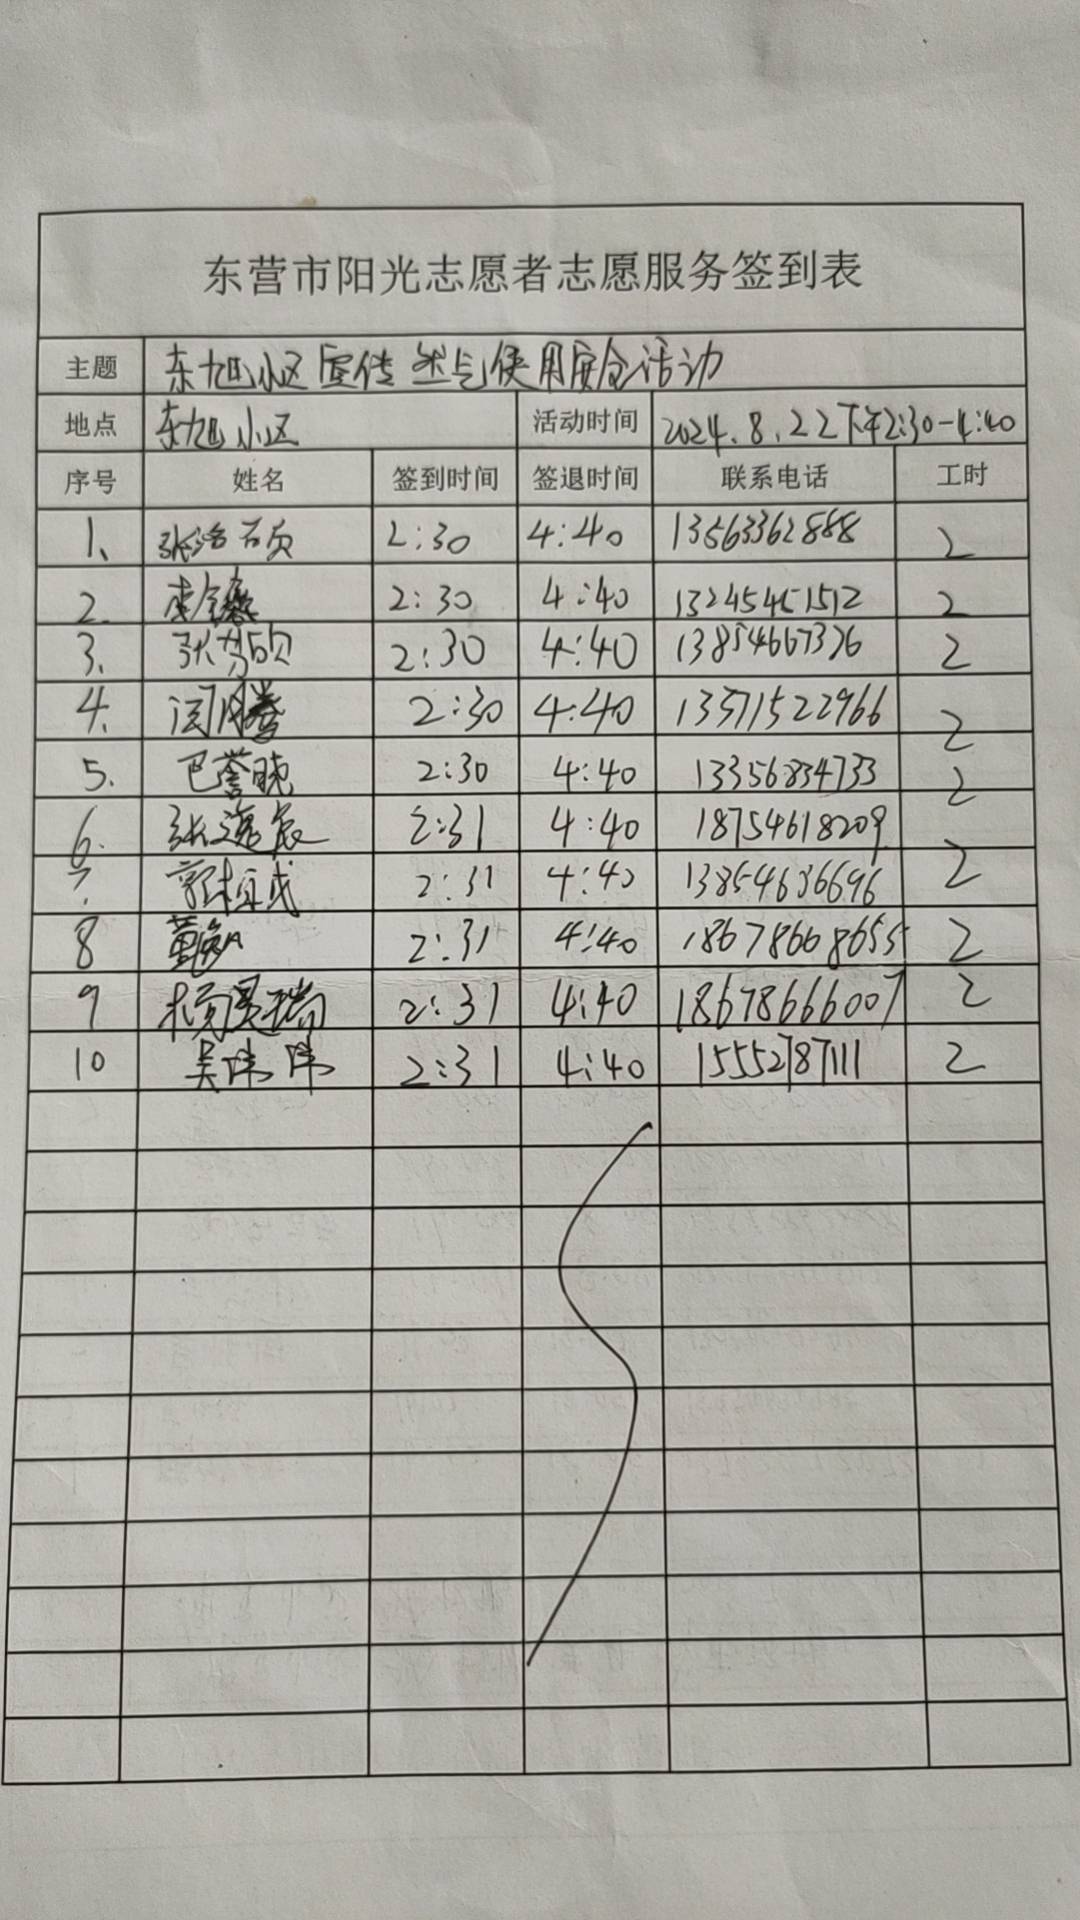 东营市阳光志愿者志愿服务签到表
主题 东旭小区宣传燃气使用安全活动
地点 东旭小区 活动时间 2024.8.22下午2:30-4:40
序号 姓名 签到时间 签退时间 联系电话 工时
1、 张洛硕 2:30 4:40 13563362888 2
2. 李 2:30 4:40 13245461512 2
3、 张 2:30 4:40 13854667376 2
4、 闫月腾 2:30 4:40 13371522966 2
5. 巴誉晓 2:30 4:40 13356834733 2
6. 张逸辰 2:31 4:40 18754618209
7. 郭桓成 2:31 4:40 13854636696 2
8 黄 2:31 4:40 18678668655 2
9 杨昊瑞 2:31 4:40 18678666007 2
10 吴沛沛 2:31 4:40 15552787111 2